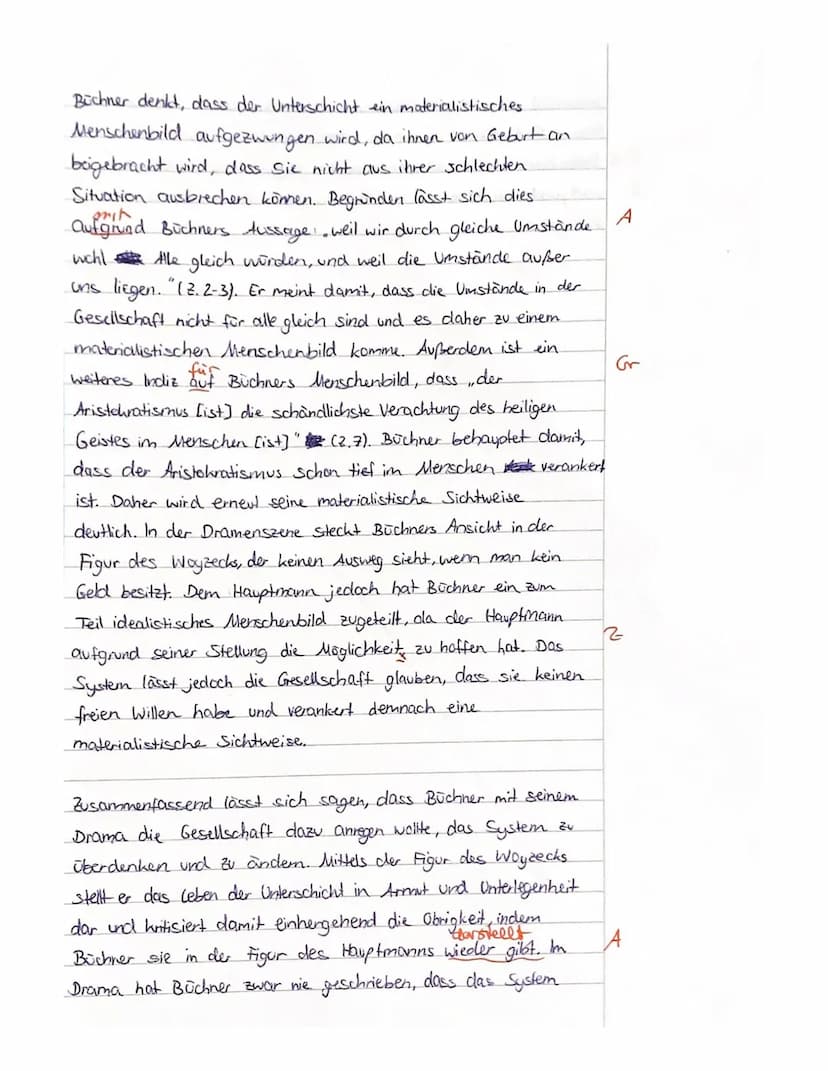 Büchner denkt, dass der Unterschicht ein materialistisches
Menschenbild aufgezwungen wird, da ihnen von Geburt an
beigebracht wird, dass sie nicht aus ihrer schlechten
Situation ausbrechen können. Begründen lässt sich dies
mit
Aufgrund Büchners Aussage: „weil wir durch gleiche Umstände A
wohl Alle gleich würden, und weil die Umstände außer
uns liegen." (Z. 2-3). Er meint damit, dass die Umstände in der
Gesellschaft nicht für alle gleich sind und es daher zu einem
materialistischen Menschenbild komme. Außerdem ist ein
für
weiteres Indiz auf Büchners Menschenbild, dass „der Gr
Aristokratismus [ist] die schändlichste Verachtung des heiligen
Geistes im Menschen [ist]" (Z. 7). Büchner behauptet damit,
dass der Aristokratismus schon tief im Menschen verankert
ist. Daher wird erneut seine materialistische Sichtweise
deutlich. In der Dramenszene steckt Büchners Ansicht in der
Figur des Woyzecks, der keinen Ausweg sieht, wenn man kein
Geld besitzt. Dem Hauptmann jedoch hat Büchner ein zum
Teil idealistisches Menschenbild zugeteilt, da der Hauptmann
aufgrund seiner Stellung die Möglichkeit, zu hoffen hat. Das Z
System lässt jedoch die Gesellschaft glauben, dass sie keinen
freien Willen habe und verankert demnach eine
materialistische Sichtweise.
Zusammenfassend lässt sich sagen, dass Büchner mit seinem
Drama die Gesellschaft dazu anregen wollte, das System zu
überdenken und zu ändern. Mittels der Figur des Woyzecks
stellt er das Leben der Unterschicht in Armut und Unterlegenheit
dar und kritisiert damit einhergehend die Obrigkeit, indem
darstellt
Büchner sie in der Figur des Hauptmanns wieder gibt. Im A
Drama hat Büchner zwar nie geschrieben, dass das System